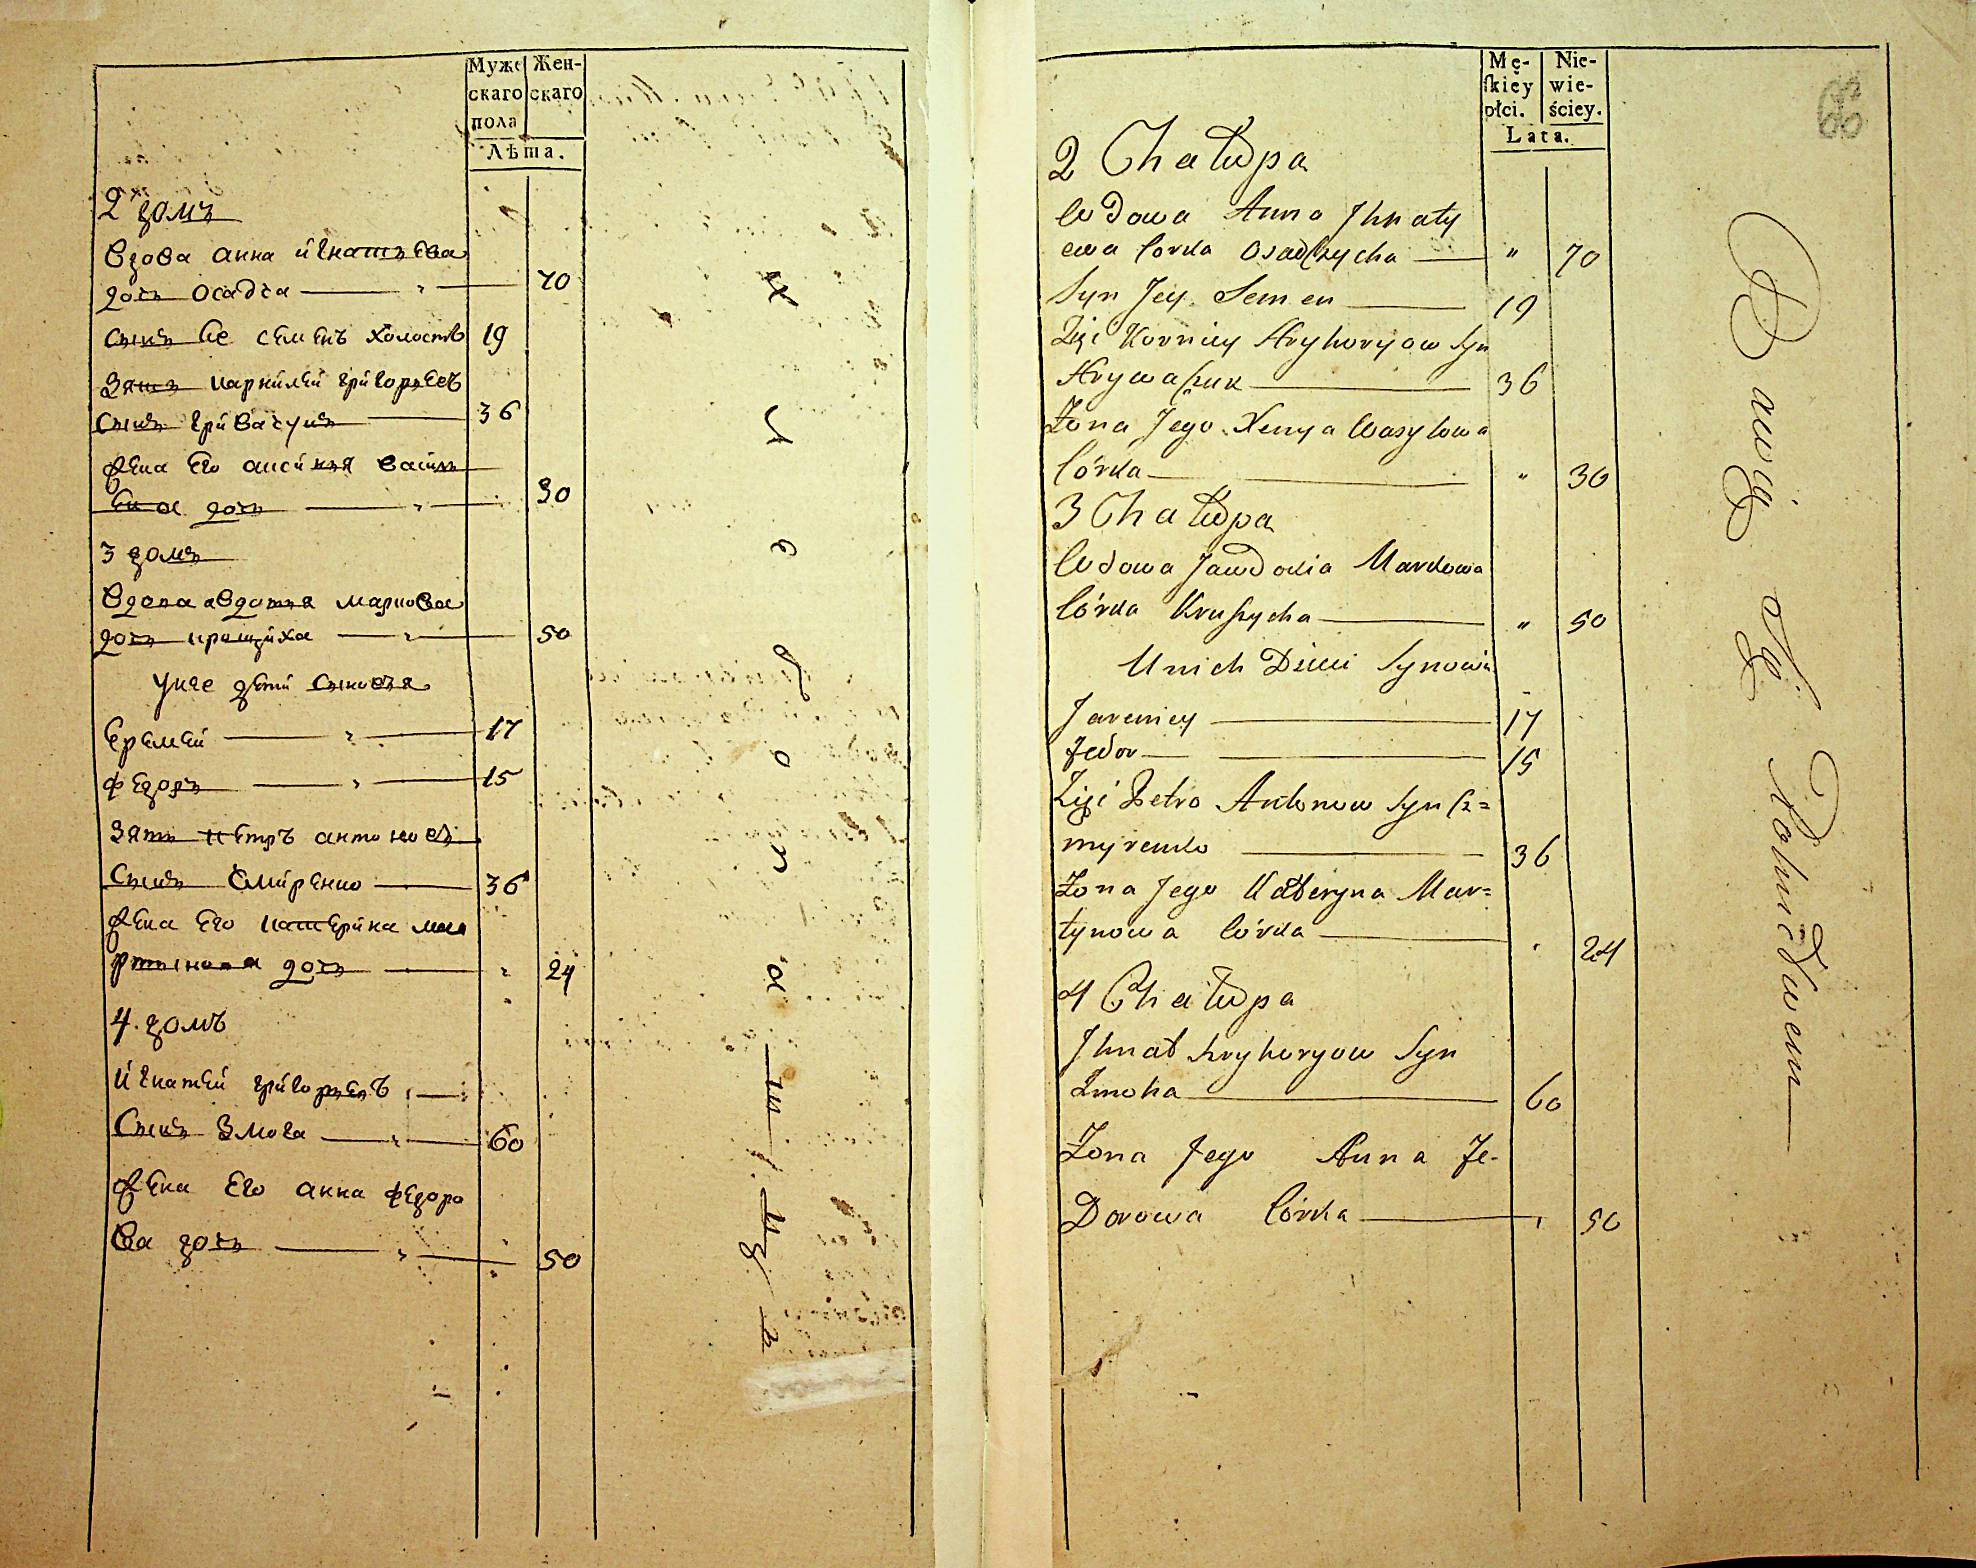 Муже
скаго
пола
Жен-
скаго
Лѣта.
2 домъ
вдова анна игнатьева
дочь осадча " 70
сынъ Ее семенъ холостъ 19
зять карнилей григорьевъ
сынъ гривачукъ 36
жена Его аксиния василь
ева дочь " 30
3 домъ
вдова авдотья маркова
дочь крищиха " 50
унее дети сыновья
Еремей " 17
федоръ " 15
зять петръ антоновъ
сынъ смиренко 36
жена Его катерина ма
ртинова дочь " 24
4 домъ
игнатей григорьевъ
сынъ змога " 60
жена Его анна федоро
ва дочь " 50
Mę-
skiey
płci.
Nie-
wie-
ściey.
Lata.
66
2 Chałupa
Wdowa Anna Ihnaty
ewa Córka Osadczycha " 70
Syn Jey Semen 19
Zięć Korniey Hryhoryow Syn
Hrywaczuk 36
Żona Jego Xenya Wasylowa
Córka " 30
3 Chałupa
Wdowa Jawdokia Markowa
Córka Kruszycha " 50
U nich Dzieci Synowie
Jaremiey 17
Fedor 15
Zięć Petro Antonow Syn Sz=
myrenko 36
Żona Jego Kateryna Mar=
tynowa Córka 24
4 Chałupa
Ihnat Hryhoryow Syn
Zmoha 60
Żona Jego Anna Fe-
Dorowa Córka 50
Bawią się Rolnictwem